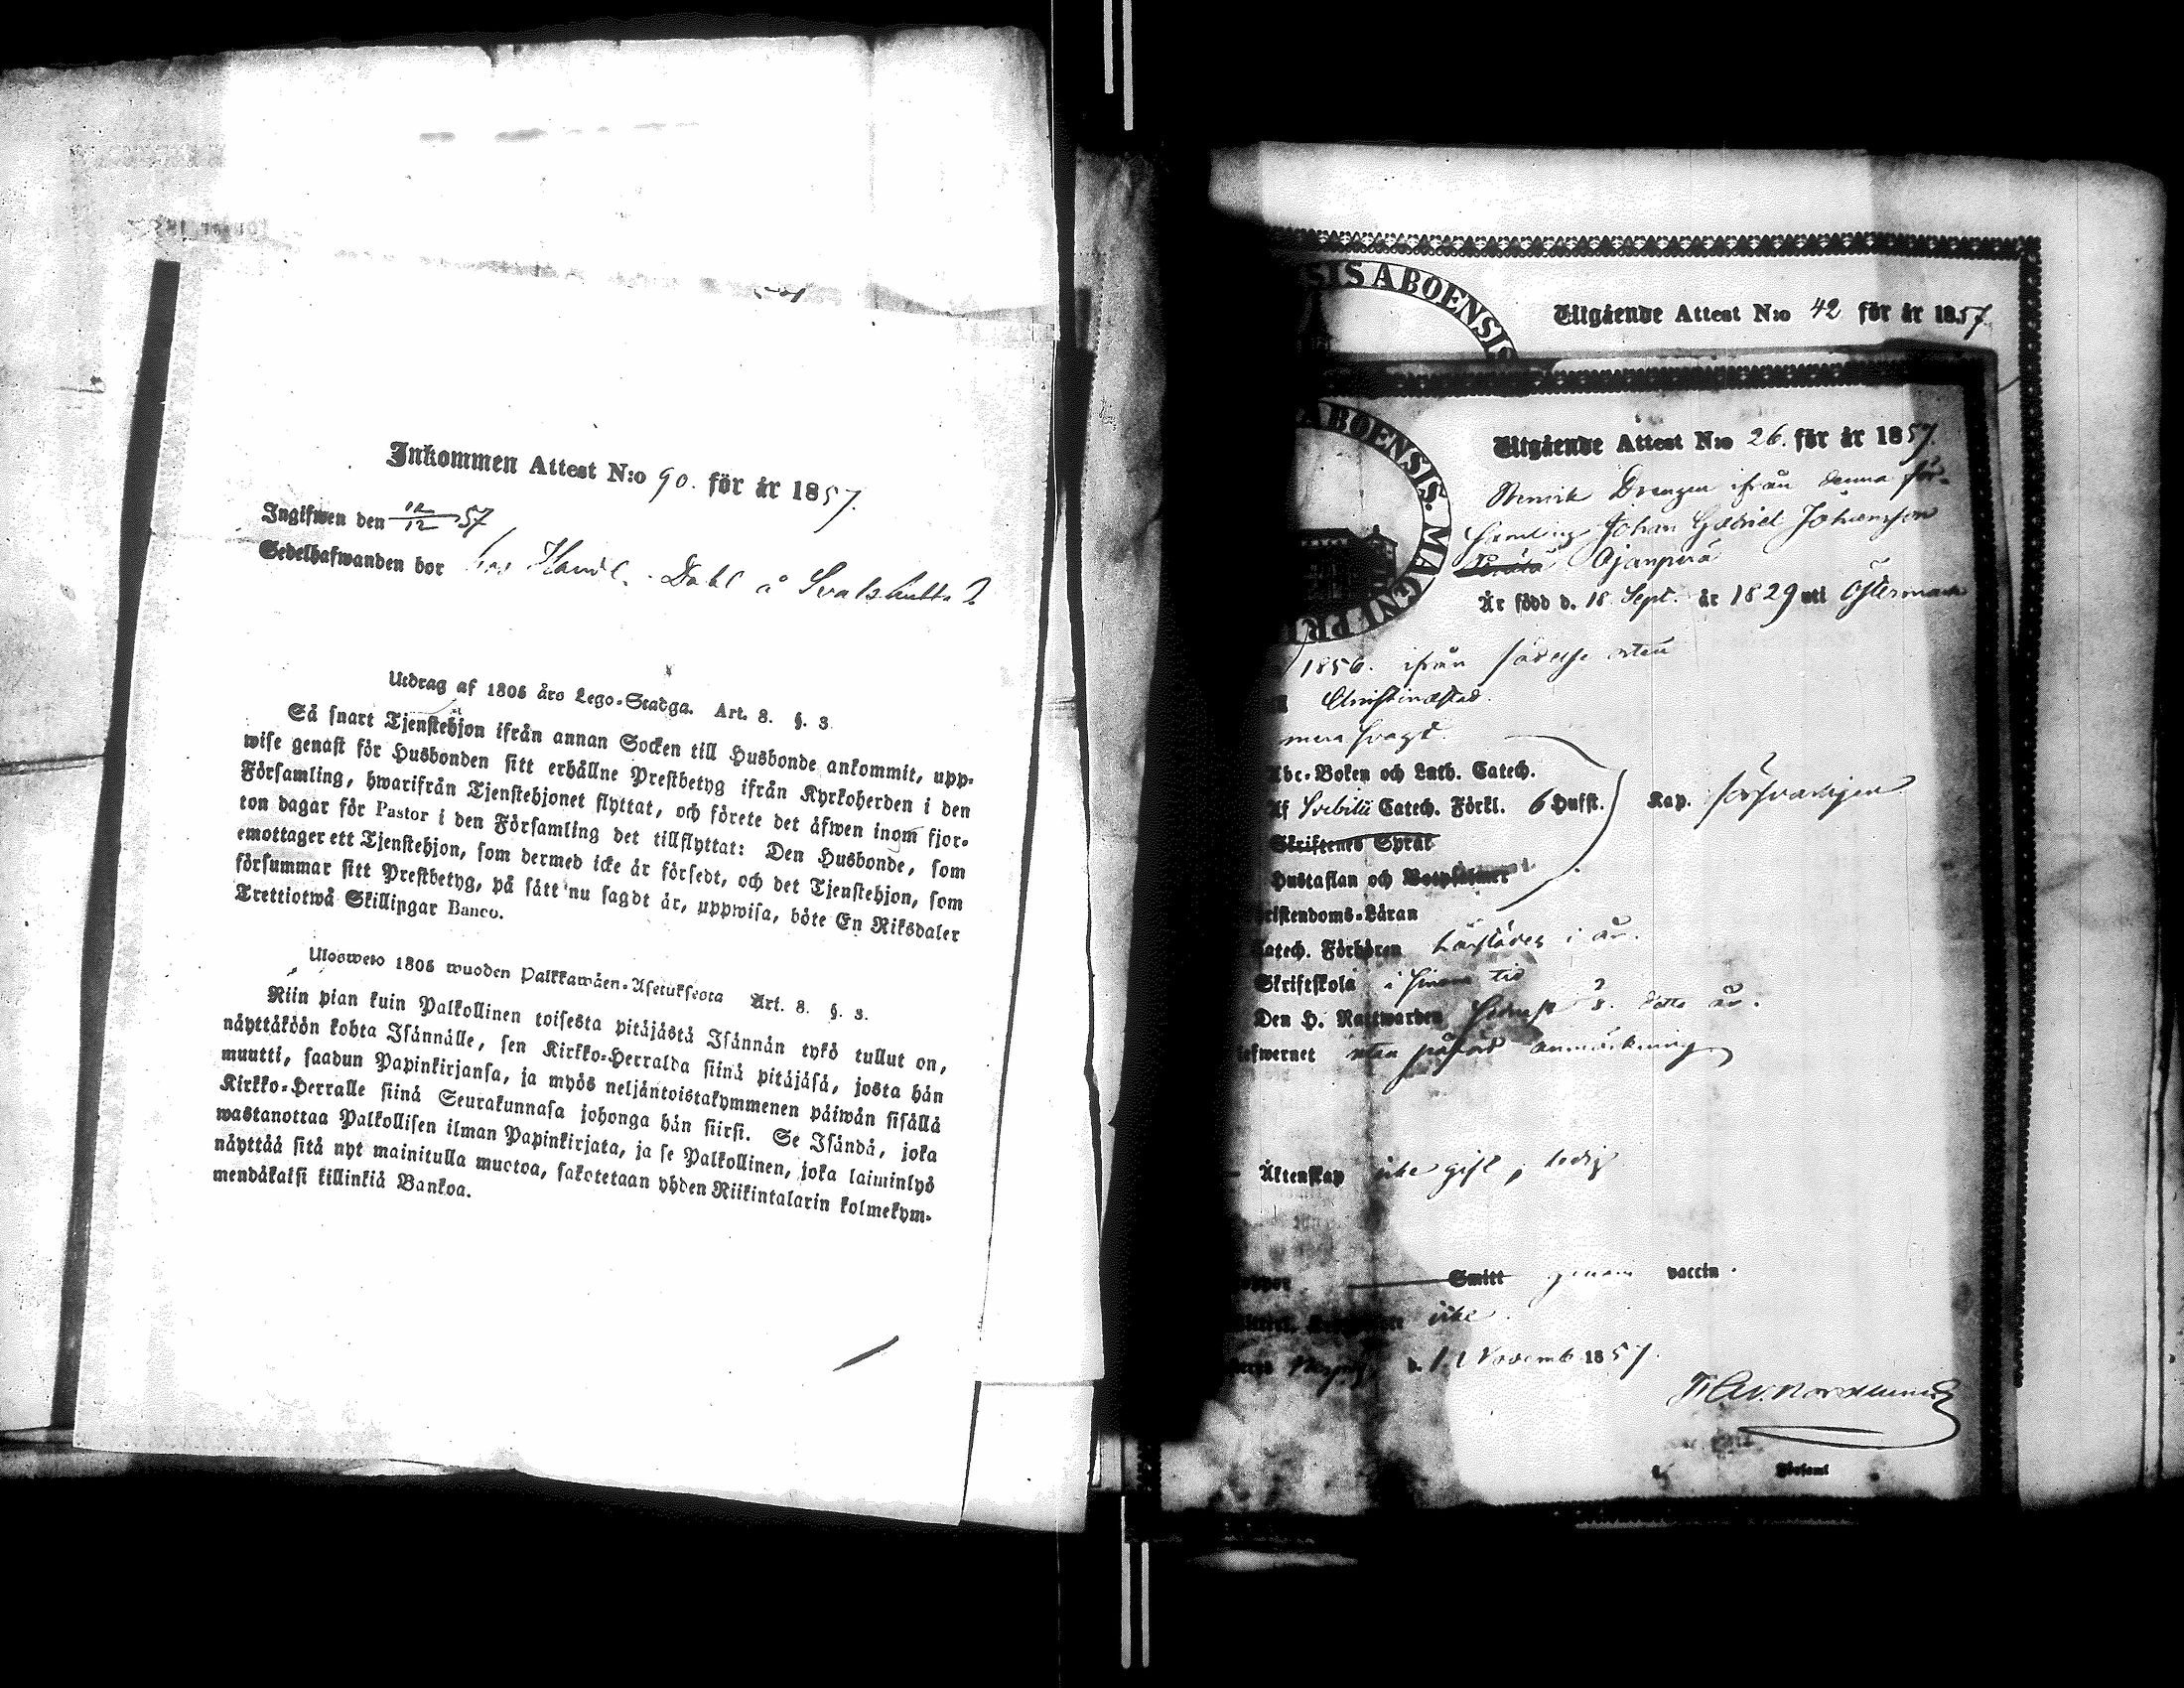 Inkommen Attest N:o 90. för år 1857.
Ingifwen den 12/12 57
Sedelhafwanden bor hos Handl. Dahl å
Utdrag af 1805 års Lego-Stadga. Art. 8. §. 3
Så snart Tjenstehjon ifrån annan Socken till Husbonde ankommit, upp-
wise genast för Husbonden sitt erhållne Prestbetyg ifrån Kyrkoherden i den
Församling, hwarifrån Tjenstehjonet flyttat, och förete det äfwen inom fjor-
ton dagar för Pastor i den Församling det tillflyttat: Den Husbonde, som
emottager ett Tjenstehjon, som dermed icke är försedt, och det Tjenstehjon, som
försummar sitt Prestbetyg, på sätt nu sagdt är, uppwisa, böte En Riksdaler
Trettiotwå Skillingar Banco.
Ulosweto 1805 wuoden Palkkawäen-Asetuksesta Art. 8. §. 3.
Niin pian kuin Palkollinen toisesta pitäjästä Isännän tykö tullut on,
näyttäköön kohta Isännälle, sen Kirkko-Herralda siinä pitäjäsä, josta hän
muutti, saadun Papinkirjansa, ja myös neljäntoistakymmenen päiwän sisällä
Kirkko-Herralle siinä Seurakunnasa johonga hän siirsi. Se Isändä, joka
wastanottaa Palkollisen ilman Papinkirjata, ja se Palkollinen, joka laiminlyö
näyttää sitä nyt mainitulla muotoa, sakotetaan yhden Riikintalarin kolmekym-
mendäkaksi killinkiä Bankoa.
SIS ABOENSIS
Utgående Attest N:o 42 för år 1857
ABOENSIS. MAGNI PR
Utgående Attest N:o 26. för år 1857.
Drengen ifrån denna för-
samling Johan Gabriel Johansson
Ojanperä
Är född d. 18 Sept. år 1829 uti Östermark
1856. ifrån födelse orten
Christinestad.
Abc-Boken och Luth. Catech.
Af Svebilii Catech. Förkl. 6 Hufst. Kap. försvarligen
Skriftenes Språk
Hustaflan och Botpsalmer
Christendoms-Läran
Catech. Förhören i år.
Skriftskola i sinom tid
Den H. Nattwarden detta år.
lefwernet utan anmärkning
Äktenskap icke gift, ledig
Smitt genom vaccin.
icke.
d. Novemb 1857.
Församl